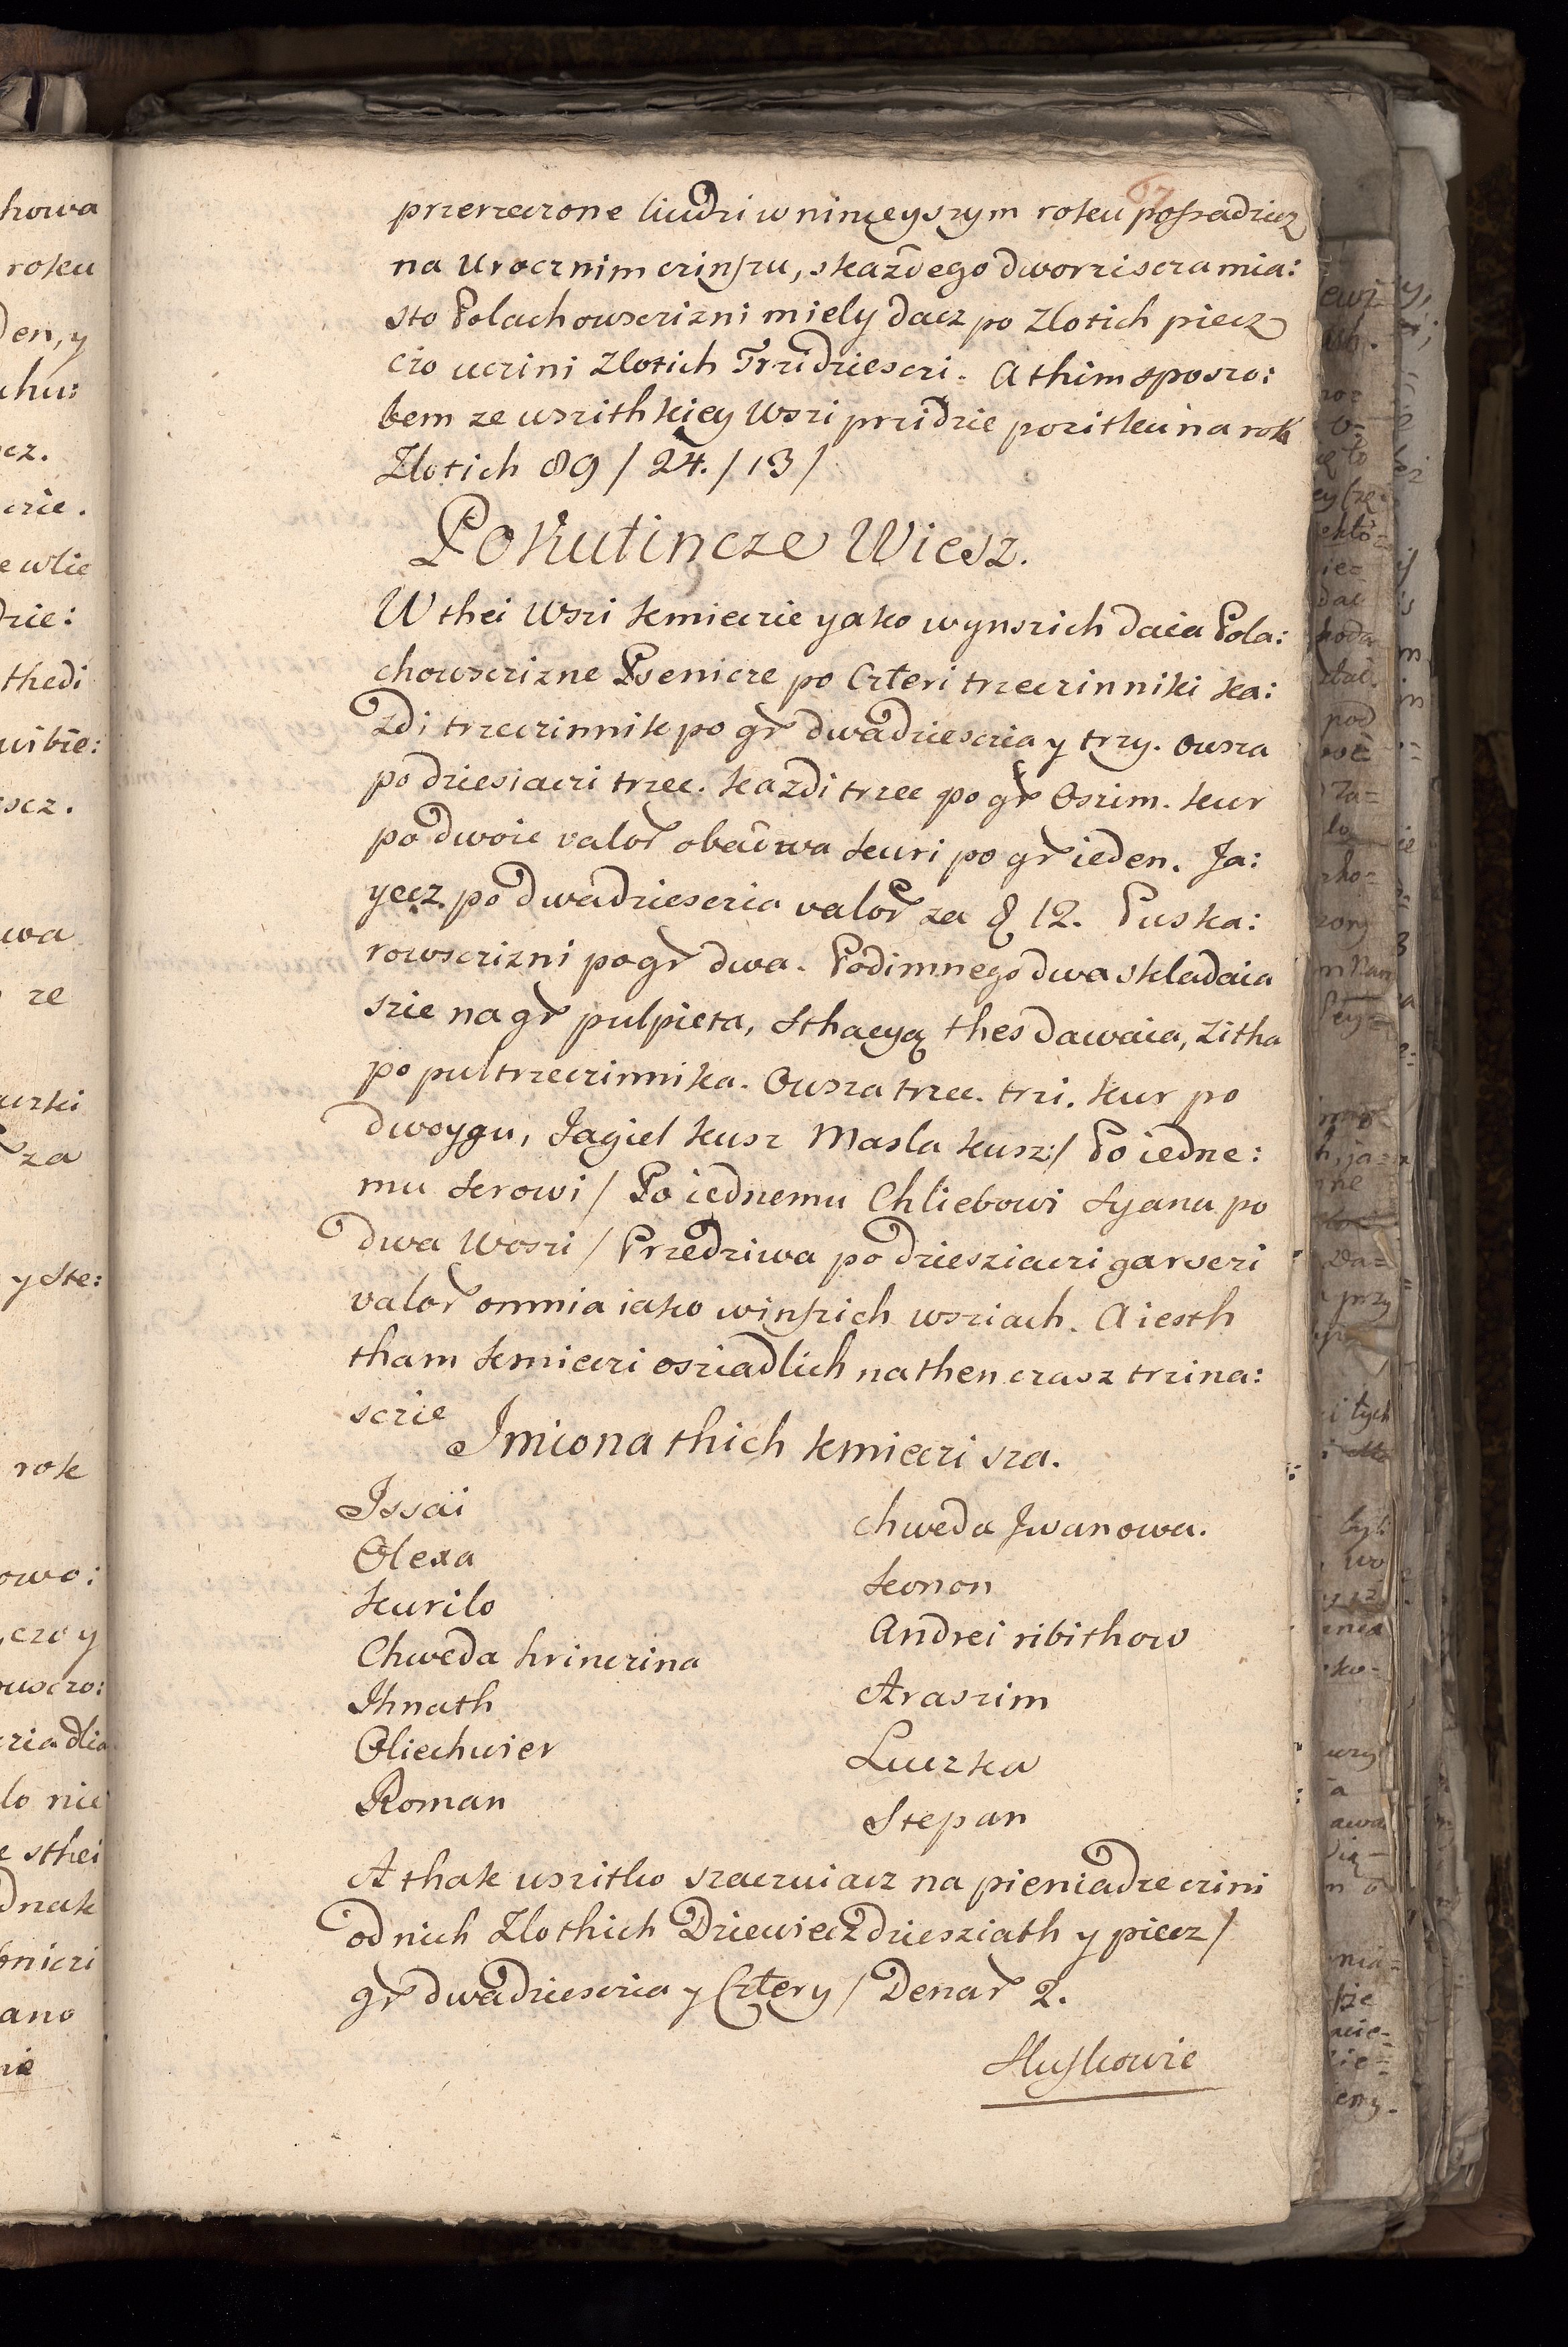 67
przerzeczone liudzi w ninieyszym roku possadzicz
na Urocznim czinszu, skażdego dworzisczamia:
sto Polachowsczizni miely dacz po Zlotich piecz
czo uczini Zlotich Trzidziesczi. A thim sposzo:
bem ze wszithkiey Wszi przidzie pozitku na rok
Zlotich 89 / 24. / 13 /
Pokutincze Wiesz.
W thei Wszi kmieczie yako wynszich daia Pola:
chowsczizne Psenicze po Czteri trzeczinniki ka:
zdi trzeczinnik po gr dwadziesczia y trzy. Owsza
po dziesiaczi trzec. kazdi trzec po gr Oszim. kur
po dwoie valor obudwu kuri po gr ieden. Ja:
yecz po dwadziesczia valor za 12. Puska:
rowsczizni po gr dwa. Podimnego dwa skladaia
szie na gr pulpieta, Sthacyą thes dawaia, Zitha
po pultrzeczinnika. Owsza trzec. trzi. kur po
dwoygu, Jagiel kusz Masla kusz:/ Po iedne:
mu Serowi / Po iednemu Chliebowi Syana po
dwa Woszi / Przedziwa po dziesziaczi garsczi
valor omnia iako winszich wsziach. A iesth
tham kmieczi osziadlich na then czasz trzina:
sczie
Imiona thich kmieczi sza.
Issai
Olexa
Kurilo
Chweda hrinczina
Ihnath
Oliechwier
Roman
chweda Jwanowa.
Konon
Andrei ribithow
Araszim
Luczka
Stepan
A thak wszitko szaczuiacz na pieniadze czini
od nich Zlothich Dziewieczdziesziath y piecz /
gr dwadziesczia y Cztery / Denar 2.
Sluszkowie